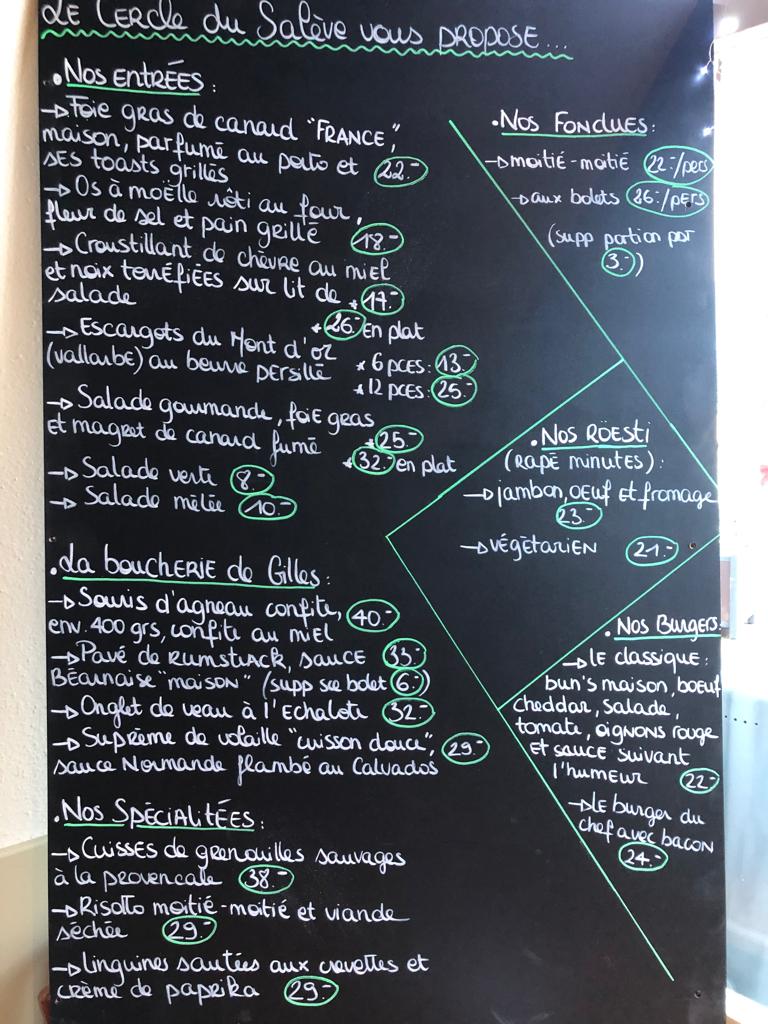 LE CERCLE du Salève vous PROPOSE...
. NOS ENTRÉES :
→ Foie gras de canard "FRANCE",
maison, parfumé au porto et
ses toasts grillés 22.-
→ Os à moëlle rôti au four,
fleur de sel et pain grillé 18.-
→ Croustillant de chèvre au miel
et noix torréfiées sur lit de
salade * 17.-
* 26.- en plat
→ Escargots du Mont d'Or
(vallorbe) au beurre persillé * 6 PCES : 13.-
* 12 PCES : 25.-
→ Salade gourmande, foie gras
et magret de canard fumé * 25.-
* 32.- en plat
→ Salade verte 8.-
→ Salade mêlée 10.-
. La boucherie de Gilles :
→ Souris d'agneau confite, 40.-
env. 400 grs, confite au miel
→ Pavé de Rumstack, sauce 33.-
Béarnaise "maison" (supp sce bolet 6.-)
→ Onglet de veau à l'Echalote 32.-
→ Suprême de volaille "cuisson douce", 29.-
sauce Normande flambé au Calvados
. Nos Spécialitées :
→ Cuisses de grenouilles sauvages
à la provencale 38.-
→ Risotto moitié-moitié et viande
séchée 29.-
→ linguines sautées aux crevettes et
crème de paprika 29.-
. Nos Fondues :
→ moitié-moitié 22.-/pers
→ aux bolets 26.-/pers
(supp portion pdt
3.-)
. Nos RÖESTI
(RAPÉ minutes) :
→ jambon, oeuf et fromage
23.-
→ végétarien 21.-
. Nos Burgers:
→ le classique :
bun's maison, boeuf
cheddar, salade,
tomate, oignons rouge
et sauce suivant
l'humeur 22.-
→ le burger du
chef avec bacon
24.-